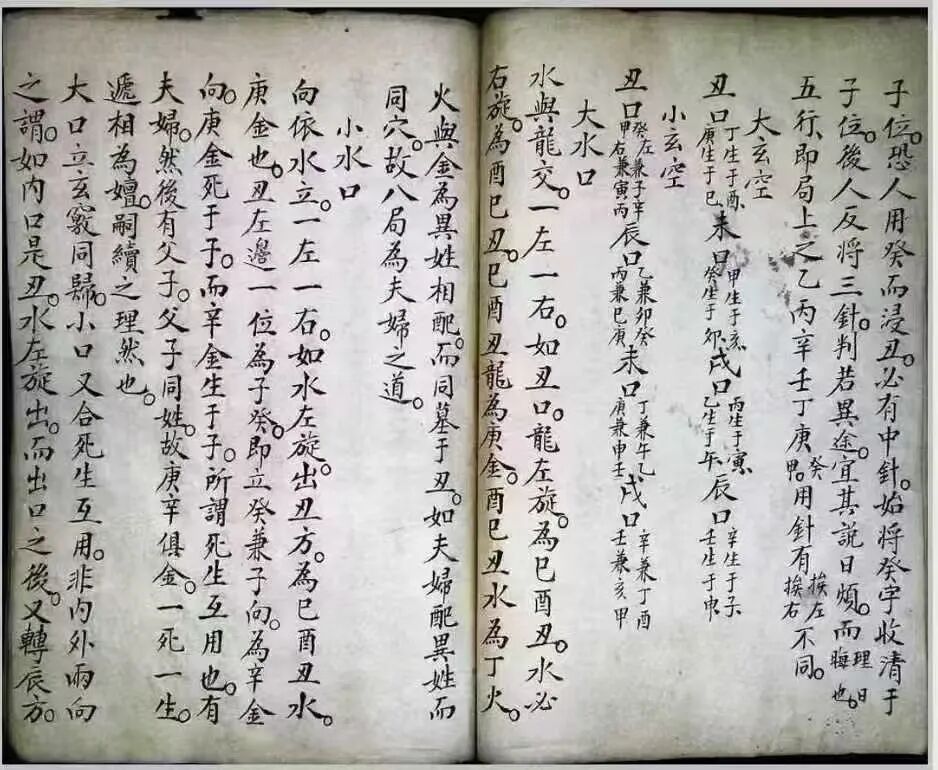 子位。恐人用癸而浸丑。必有中針。始將癸字收清于
子位。後人反將三針。判若異途。宜其說日煩。而理日晦也。
五行、即局上之乙丙辛壬丁庚癸甲。用針有挨左挨右不同。
大玄空
丑口丁生于酉庚生于巳未口甲生于亥癸生于卯戌口丙生于寅乙生于午辰口辛生于子壬生于申
小玄空
丑口癸左兼子辛甲右兼寅丙辰口乙兼卯癸丙兼巳庚未口丁兼午乙庚兼申壬戌口辛兼丁酉壬兼亥甲
大水口
水與龍交。一左一右。如丑口。龍左旋。為巳酉丑。水必
右旋。為酉巳丑。巳酉丑龍為庚金。酉巳丑水為丁火。
火與金為異姓相配。而同墓于丑。如夫婦配異姓而
同穴。故八局為夫婦之道。
小水口
向依水立。一左一右。如水左旋出。丑方。為巳酉丑水。
庚金也。丑左邊一位為子癸。即立癸兼子向。為辛金
向。庚金死于子。而辛金生于子。所謂死生互用也。有
夫婦。然後有父子。父子同姓。故庚辛俱金。一死一生。
遞相為嬗。嗣續之理然也。
大口立玄竅同歸。小口又合死生互用。非內外兩向
之謂。如內口是丑。水左旋出。而出口之後。又轉辰方。